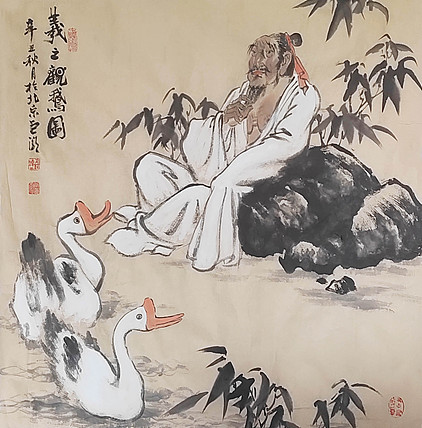 羲之觀鵞圖
辛丑秋月於北京